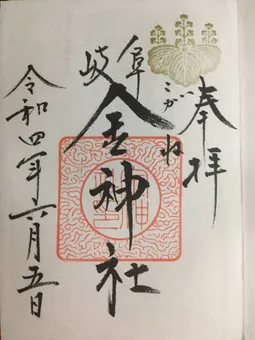 奉拝
岐阜
こがね
金神社
令和四年六月五日